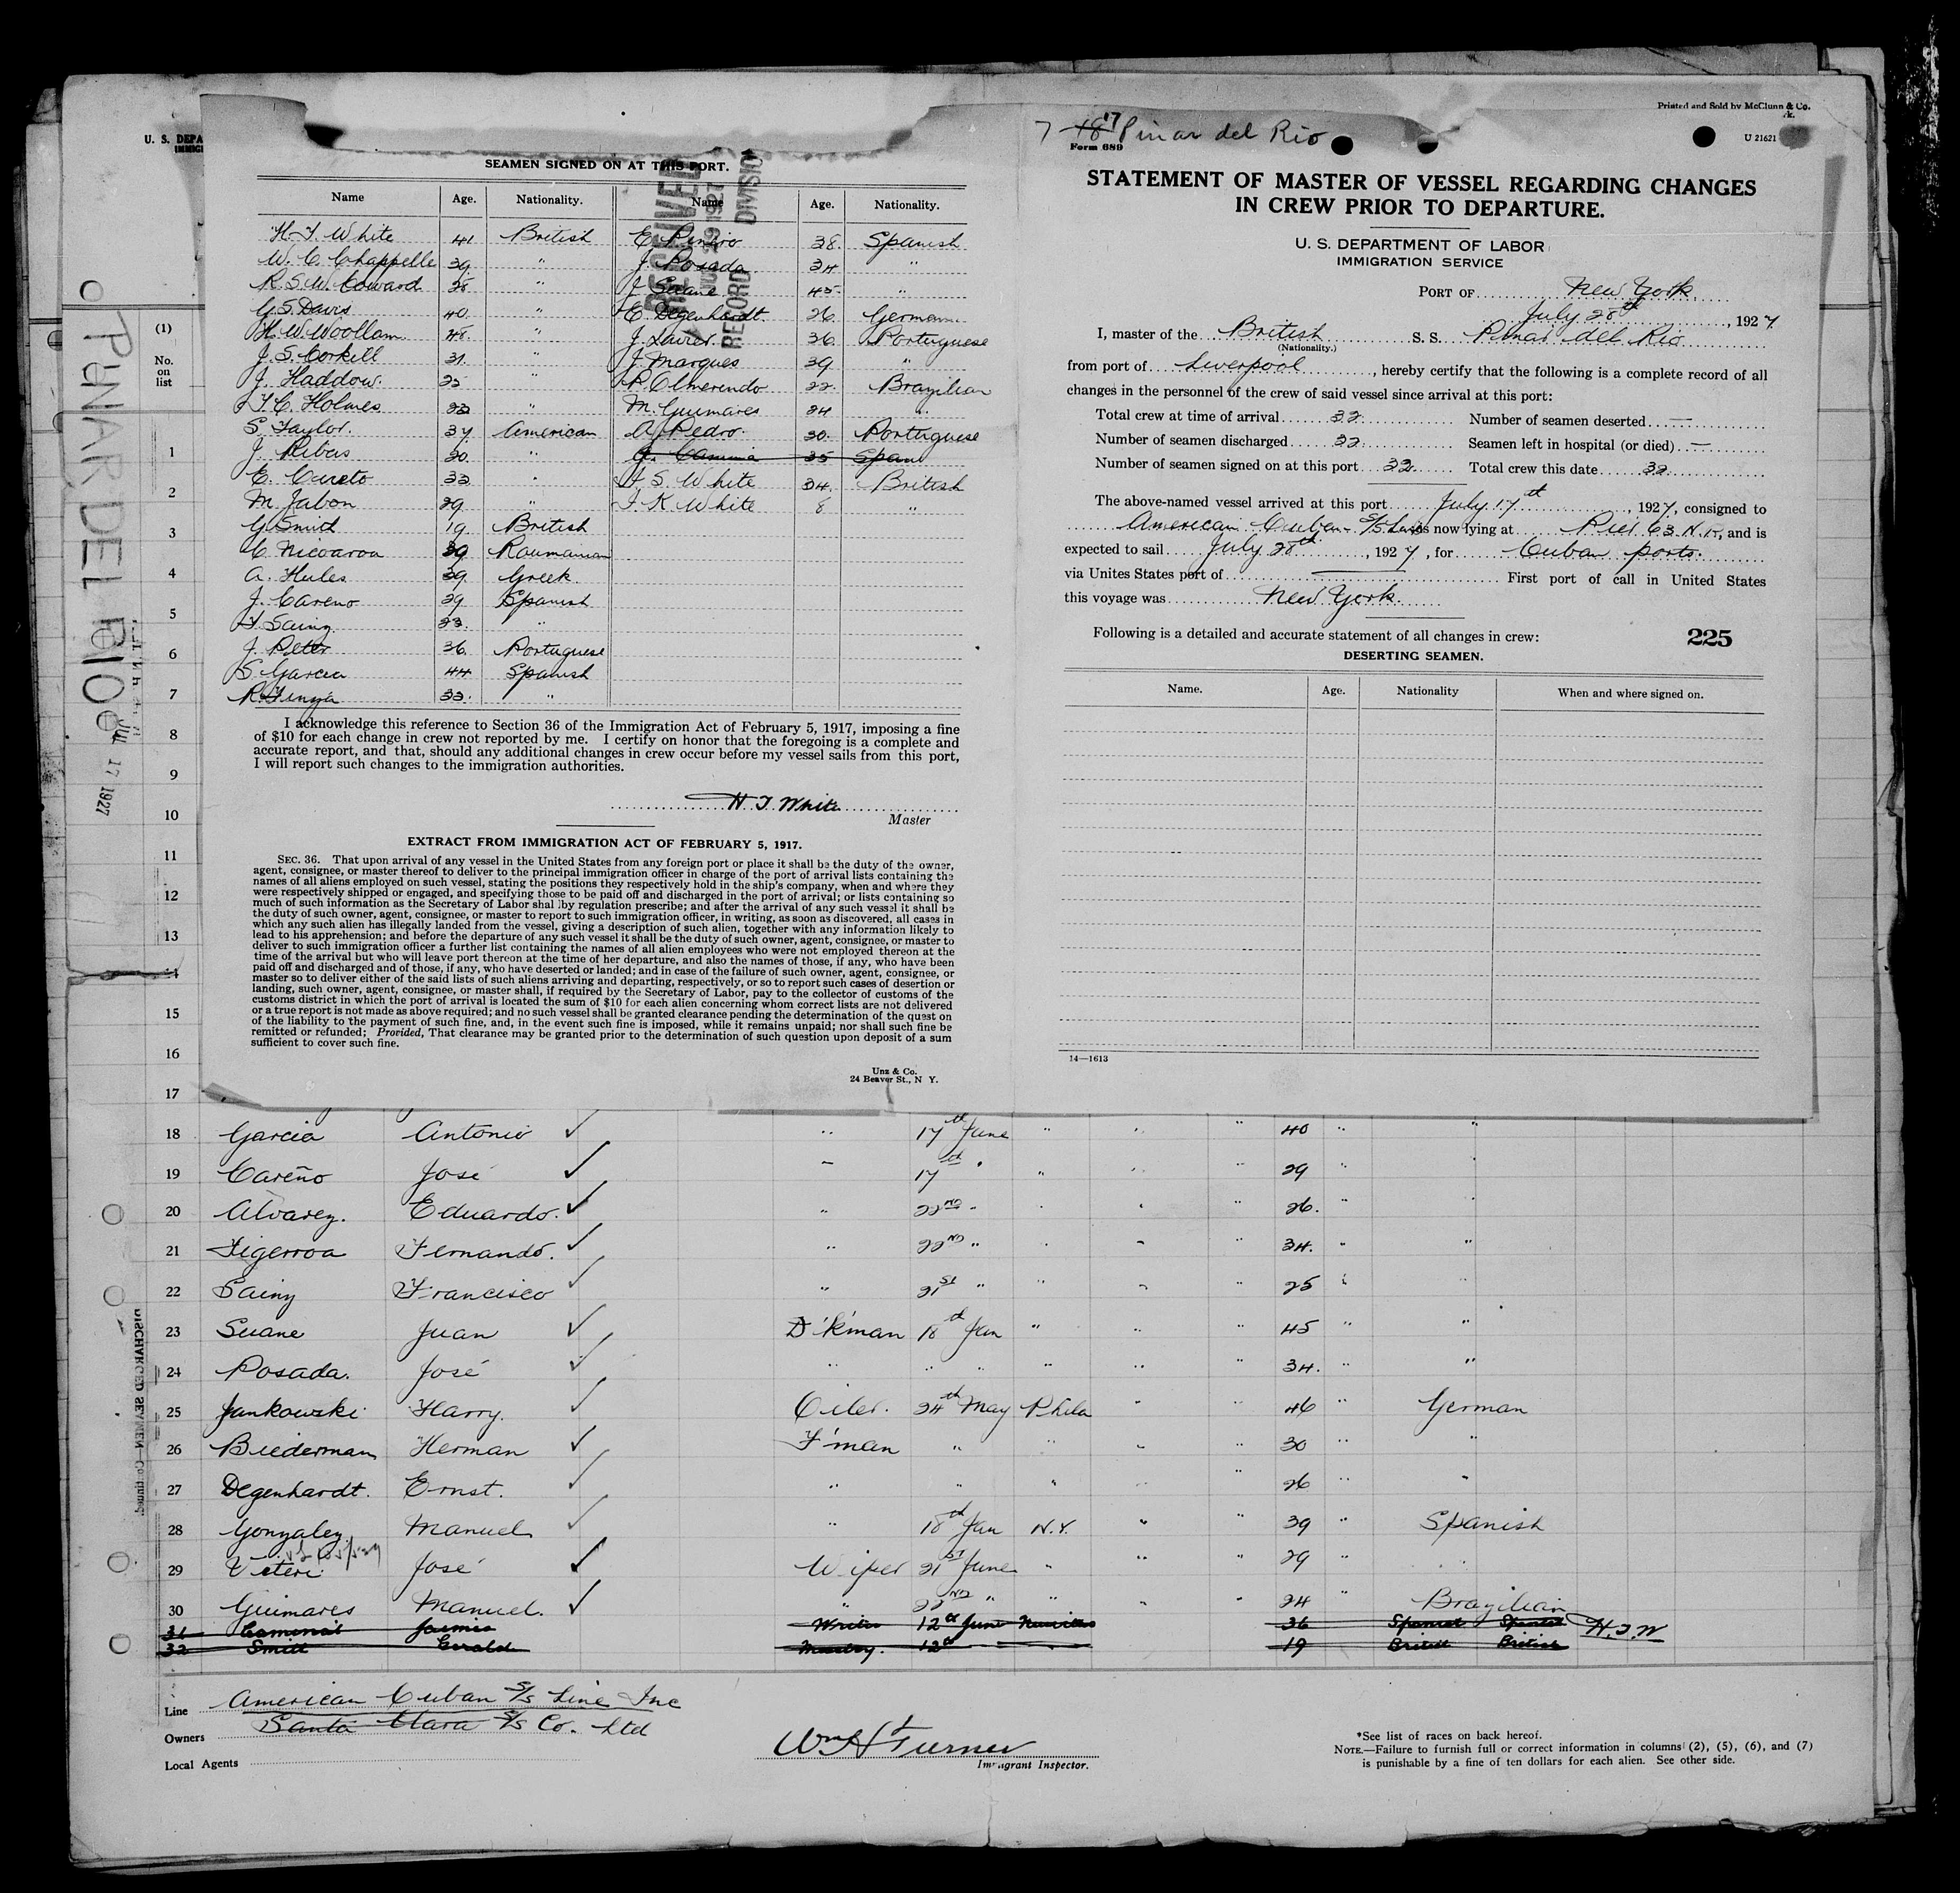 U. S. DEPA
IMMIG
PUNAR DEL RIO
JUL 17 1927
(1)
No.
on
list
1
2
3
4
5
6
7
8
9
10
11
12
13
14
15
16
17
SEAMEN SIGNED ON AT THIS PORT.
RECEIVED
1927
RECORD DIVISION
Name Age. Nationality. Name Age. Nationality.
H. T. White 41 British E. 38 Spanish
W. C. Chappelle 39 " J. Posada 34 "
R. S. W. Coward 28 " J. Suane 45 "
G. S. Davis 40 " E. Degenhardt. 26 German
H. W. Woollam 48 " J. 36 Portuguese
J. S. Corkill 31 " J. Marques 39 "
J. Haddow. " R. Olmerendo 22 Brazilian
T. C. Holmes " M. Guimares 24 "
S. Taylor. 37 American A. Pedro. 30. Portuguese
J. Ribas 30 " 35 Span
E. Cureto 33 " T S. White 34. British
M. Jabon 29 " J. K. White 8 "
G. Smith 19 British
C. Nicoaroa 39 Roumanian
A. Hules 39 Greek
J. Careno 29 Spanish
F. Sainz 23. "
J. Peter 36 Portuguese
S. Garcia 44 Spanish
R. "
I acknowledge this reference to Section 36 of the Immigration Act of February 5, 1917, imposing a fine
of $10 for each change in crew not reported by me. I certify on honor that the foregoing is a complete and
accurate report, and that, should any additional changes in crew occur before my vessel sails from this port,
I will report such changes to the immigration authorities.
H T White
Master
EXTRACT FROM IMMIGRATION ACT OF FEBRUARY 5, 1917.
SEC. 36. That upon arrival of any vessel in the United States from any foreign port or place it shall be the duty of the owner,
agent, consignee, or master thereof to deliver to the principal immigration officer in charge of the port of arrival lists containing the
names of all aliens employed on such vessel, stating the positions they respectively hold in the ship's company, when and where they
were respectively shipped or engaged, and specifying those to be paid off and discharged in the port of arrival; or lists containing so
much of such information as the Secretary of Labor shal by regulation prescribe; and after the arrival of any such vessel it shall be
the duty of such owner, agent, consignee, or master to report to such immigration officer, in writing, as soon as discovered, all cases in
which any such alien has illegally landed from the vessel, giving a description of such alien, together with any information likely to
lead to his apprehension; and before the departure of any such vessel it shall be the duty of such owner, agent, consignee, or master to
deliver to such immigration officer a further list containing the names of all alien employees who were not employed thereon at the
time of the arrival but who will leave port thereon at the time of her departure, and also the names of those, if any, who have been
paid off and discharged and of those, if any, who have deserted or landed; and in case of the failure of such owner, agent, consignee, or
master so to deliver either of the said lists of such aliens arriving and departing, respectively, or so to report such cases of desertion or
landing, such owner, agent, consignee, or master shall, if required by the Secretary of Labor, pay to the collector of customs of the
customs district in which the port of arrival is located the sum of $10 for each alien concerning whom correct lists are not delivered
or a true report is not made as above required; and no such vessel shall be granted clearance pending the determination of the quest on
of the liability to the payment of such fine, and, in the event such fine is imposed, while it remains unpaid; nor shall such fine be
remitted or refunded; Provided, That clearance may be granted prior to the determination of such question upon deposit of a sum
sufficient to cover such fine.
Unz & Co.
24 Beaver St., N Y.
Printed and Sold by McClunn & Co.
U 21621
7 18 17 Pinar del Rio
Form 689
STATEMENT OF MASTER OF VESSEL REGARDING CHANGES
IN CREW PRIOR TO DEPARTURE.
U. S. DEPARTMENT OF LABOR
IMMIGRATION SERVICE
PORT OF New York
July 28th, 1927
I, master of the British S. S. Pinar del Rio
(Nationality.)
from port of Liverpool, hereby certify that the following is a complete record of all
changes in the personnel of the crew of said vessel since arrival at this port:
Total crew at time of arrival 32 Number of seamen deserted —
Number of seamen discharged 32 Seamen left in hospital (or died) —
Number of seamen signed on at this port 32 Total crew this date 32
The above-named vessel arrived at this port July 17th, 1927, consigned to
American Cuban S/S Line is now lying at Pier 63 N. R., and is
expected to sail July 28th, 1927, for Cuban ports.
via Unites States port of — First port of call in United States
this voyage was New York.
Following is a detailed and accurate statement of all changes in crew: 225
DESERTING SEAMEN.
Name. Age. Nationality When and where signed on.
14—1613
18 Garcia Antonio ✓ " 17th June " " " 40 " "
19 Careño José ✓ " 17th " " " " 29 " "
20 Alvarez. Eduardo. ✓ " 22nd " " " " 26. " "
21 Figerroa Fernando. ✓ " 22nd " " " " 34. " "
22 Sainz Francisco ✓ " 21st " " " " 25 " "
23 Suane Juan ✓ D'kman 18th Jan " " " 45 " "
24 Posada. José ✓ " " " " " " 34. " "
25 Jankowski Harry. ✓ Oiler. 24th May Phila " 46 " German
26 Biederman Herman ✓ F'man " " " " 30 " "
27 Degenhardt. Ernst. ✓ " " " " " 26 " "
28 Gonzalez Manuel ✓ " 18th Jan N.Y. " " 39 " Spanish
29 Viteri José ✓ Wiper 21st June " " " 29 " "
30 Guimares Manuel. ✓ " 22nd " " " " 24 " Brazilian
31 Jaimie Writer 12th June 36 Spanish Spanish H.T.W
32 Smith Gerald 12th 19 British British
DISCHARGED SEAMEN—Continued
Line American Cuban S/S Line Inc
Owners Santa Clara S/S Co. Ltd
Local Agents
Wm H Turner
Immigrant Inspector.
*See list of races on back hereof.
NOTE.—Failure to furnish full or correct information in columns (2), (5), (6), and (7)
is punishable by a fine of ten dollars for each alien. See other side.